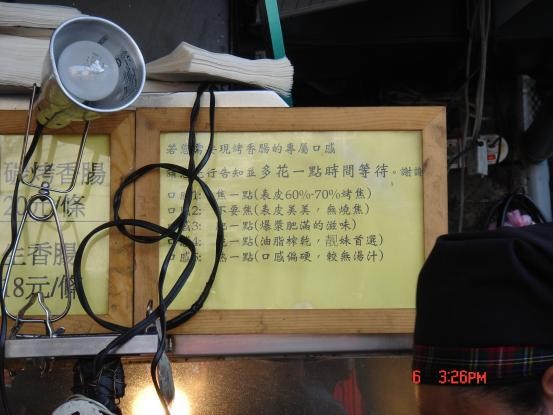 碳烤香腸
20元/條
生香腸
18元/條
若您需 現烤香腸的專屬口感
請 行告知並多花一點時間等待。謝謝
口感1: 焦一點(表皮60%-70%烤焦)
口感2: 不要焦(表皮美美，無燒焦)
口感3: 肥一點(爆漿肥滿的滋味)
口感4: 乾一點(油脂榨乾，靚妹首選)
口感5: 一點(口感偏硬，較無湯汁)
6 3:26PM